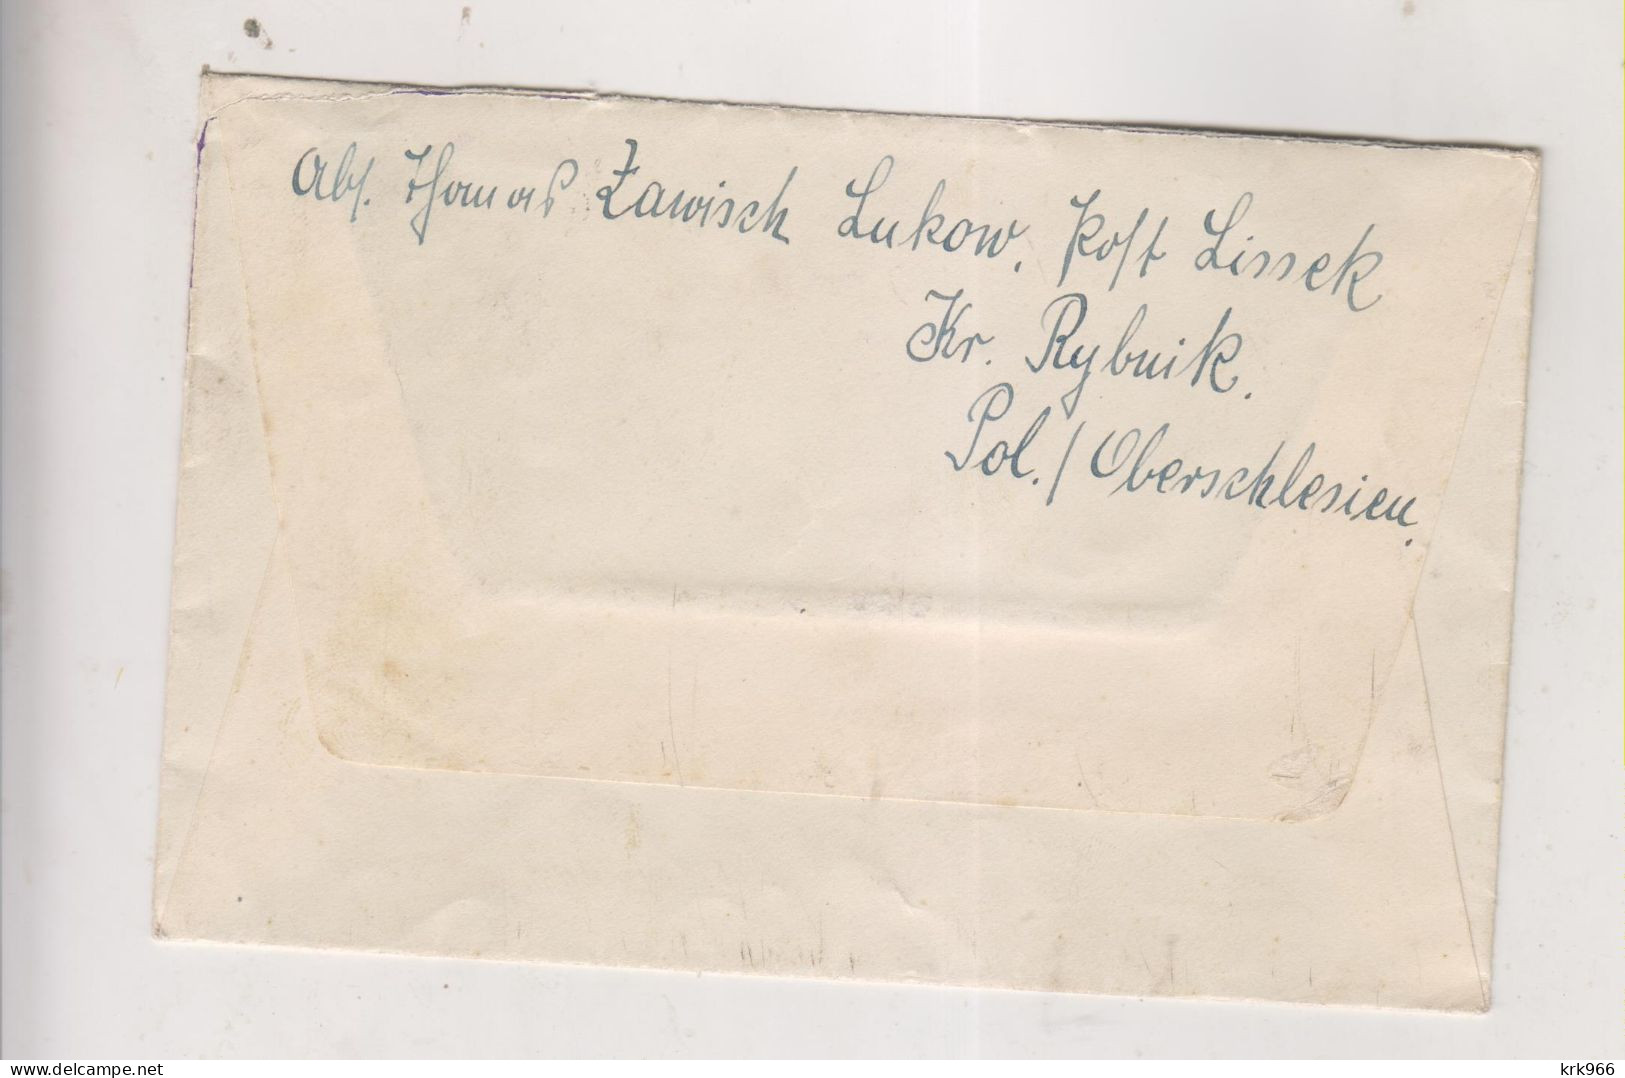 Abs. Thomas Zawisch Lukow, Post Lissek
Kr. Rybnik.
Pol./Oberschlesien.
delcampe.net
krk966